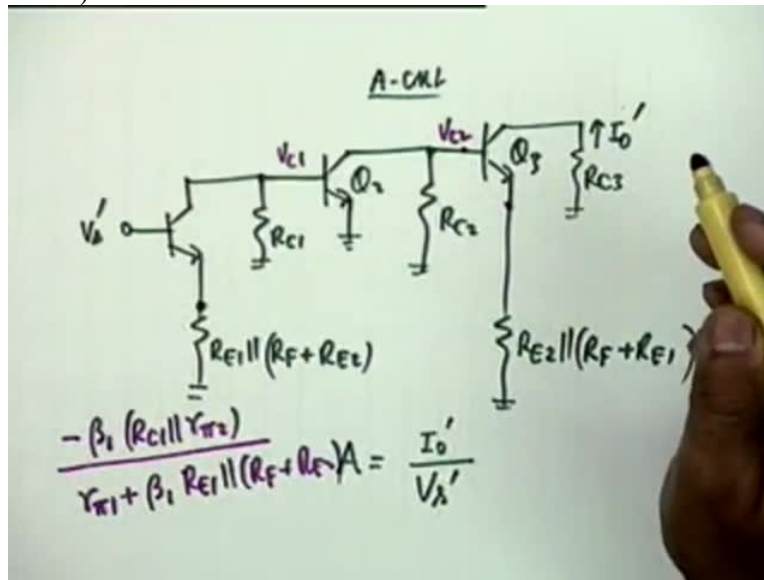 A-CKT
Vs'
VC1
Q2
VC2
Q3
↑ Io'
RC1
RC2
RC3
RE1||(RF+RE2)
RE2||(RF+RE1)
-β1 (RC1||rπ2)
rπ1+β1 RE1||(RF+RE2) A = Io'
Vs'